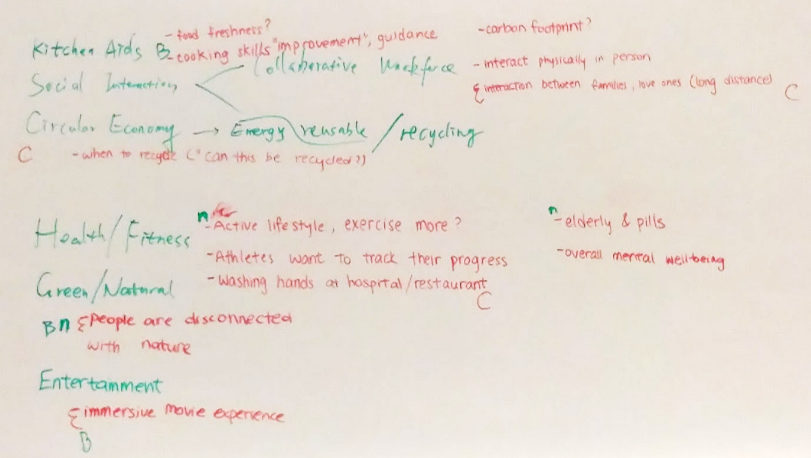 - food freshness?
- carbon footprint?
Kitchen Aids B - cooking skills "improvement", guidance
Social Interaction
Collaborative Workforce
- interact physically in person
{ interaction between families, love ones (long distance) C
Circular Economy → Energy reusable / recycling
C - when to recycle ("can this be recycled?")
Health/Fitness
n - Active lifestyle, exercise more?
- Athletes want to track their progress
- Washing hands at hospital/restaurant
C
n - elderly & pills
- overall mental well-being
Green/Natural
B n { People are disconnected
with nature
Entertainment
{ immersive movie experience
B